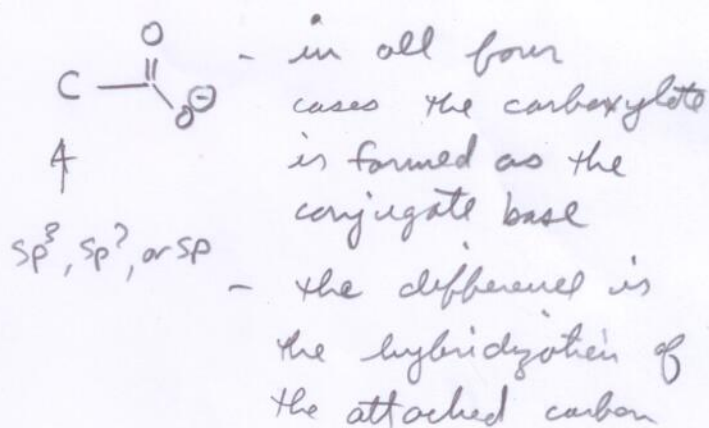 O
C O⊖
sp³, sp², or sp
- in all four
cases the carboxylate
is formed as the
conjugate base
- the difference is
the hybridization of
the attached carbon